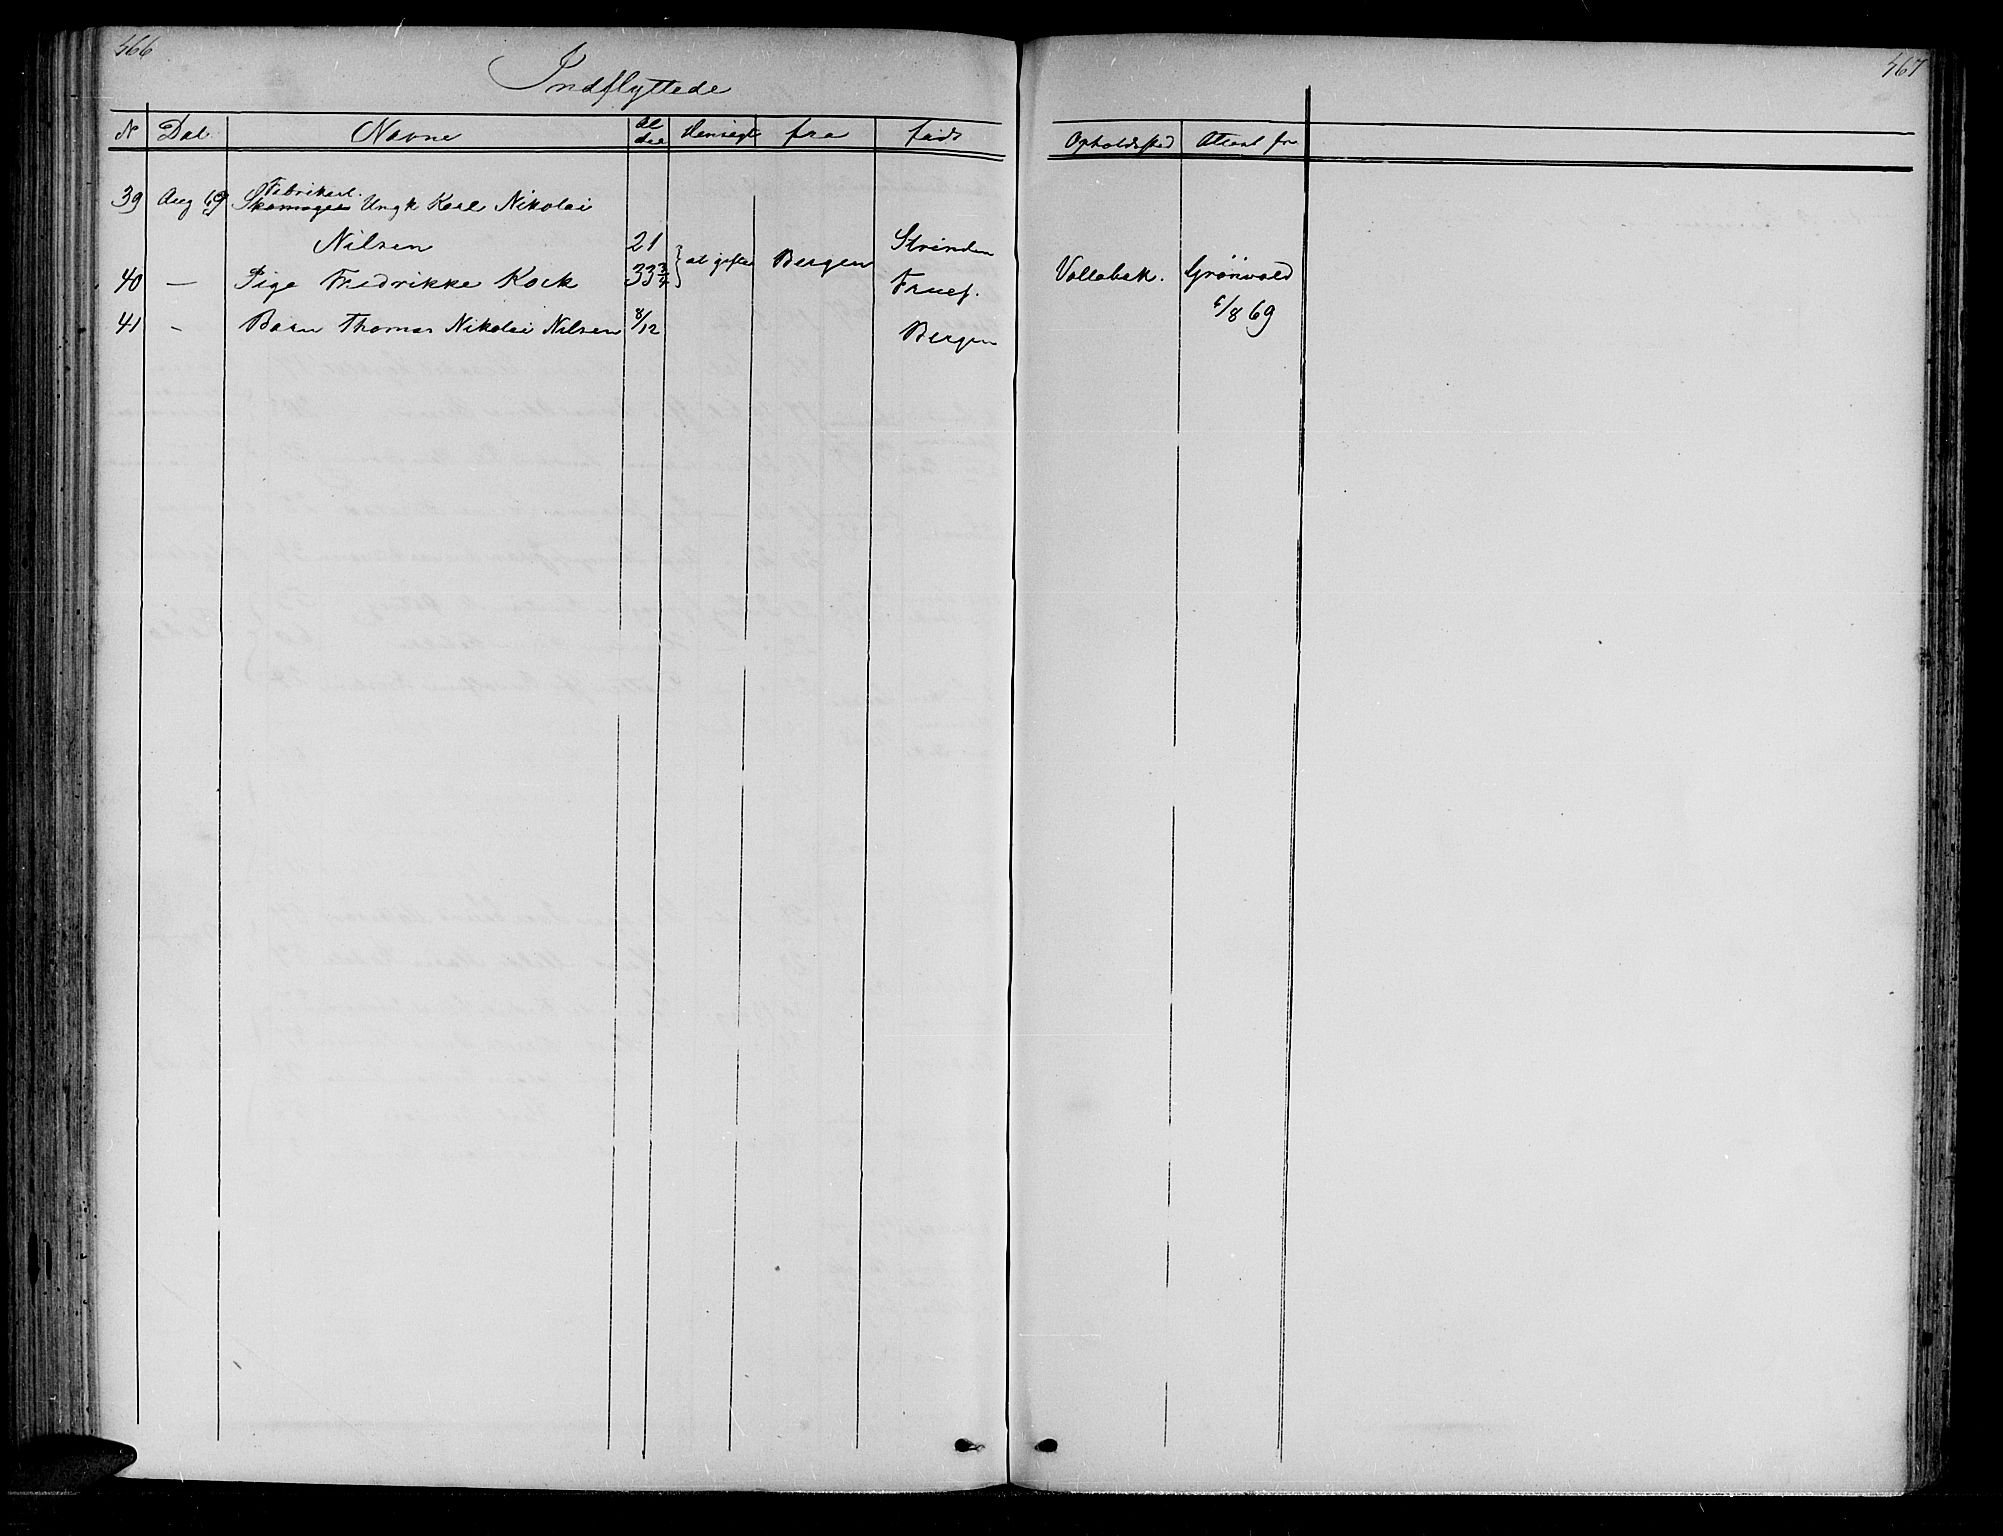 466
467
Indflyttede
N Dat. Navne Al der Hensigt fra født Opholdssted Attest fra
Fabrikarb.
39 Aug 69 Skomager Ungk Karl Nikolai
Nilsen 21 Strinden
at gifte Bergen
40 — Pige Fredrikke Kock 33 3/4 Fruef. Vollabak. Grönvold
6/8 69
41 - Barn Thomas Nikolai Nilsen 8/12 Bergen